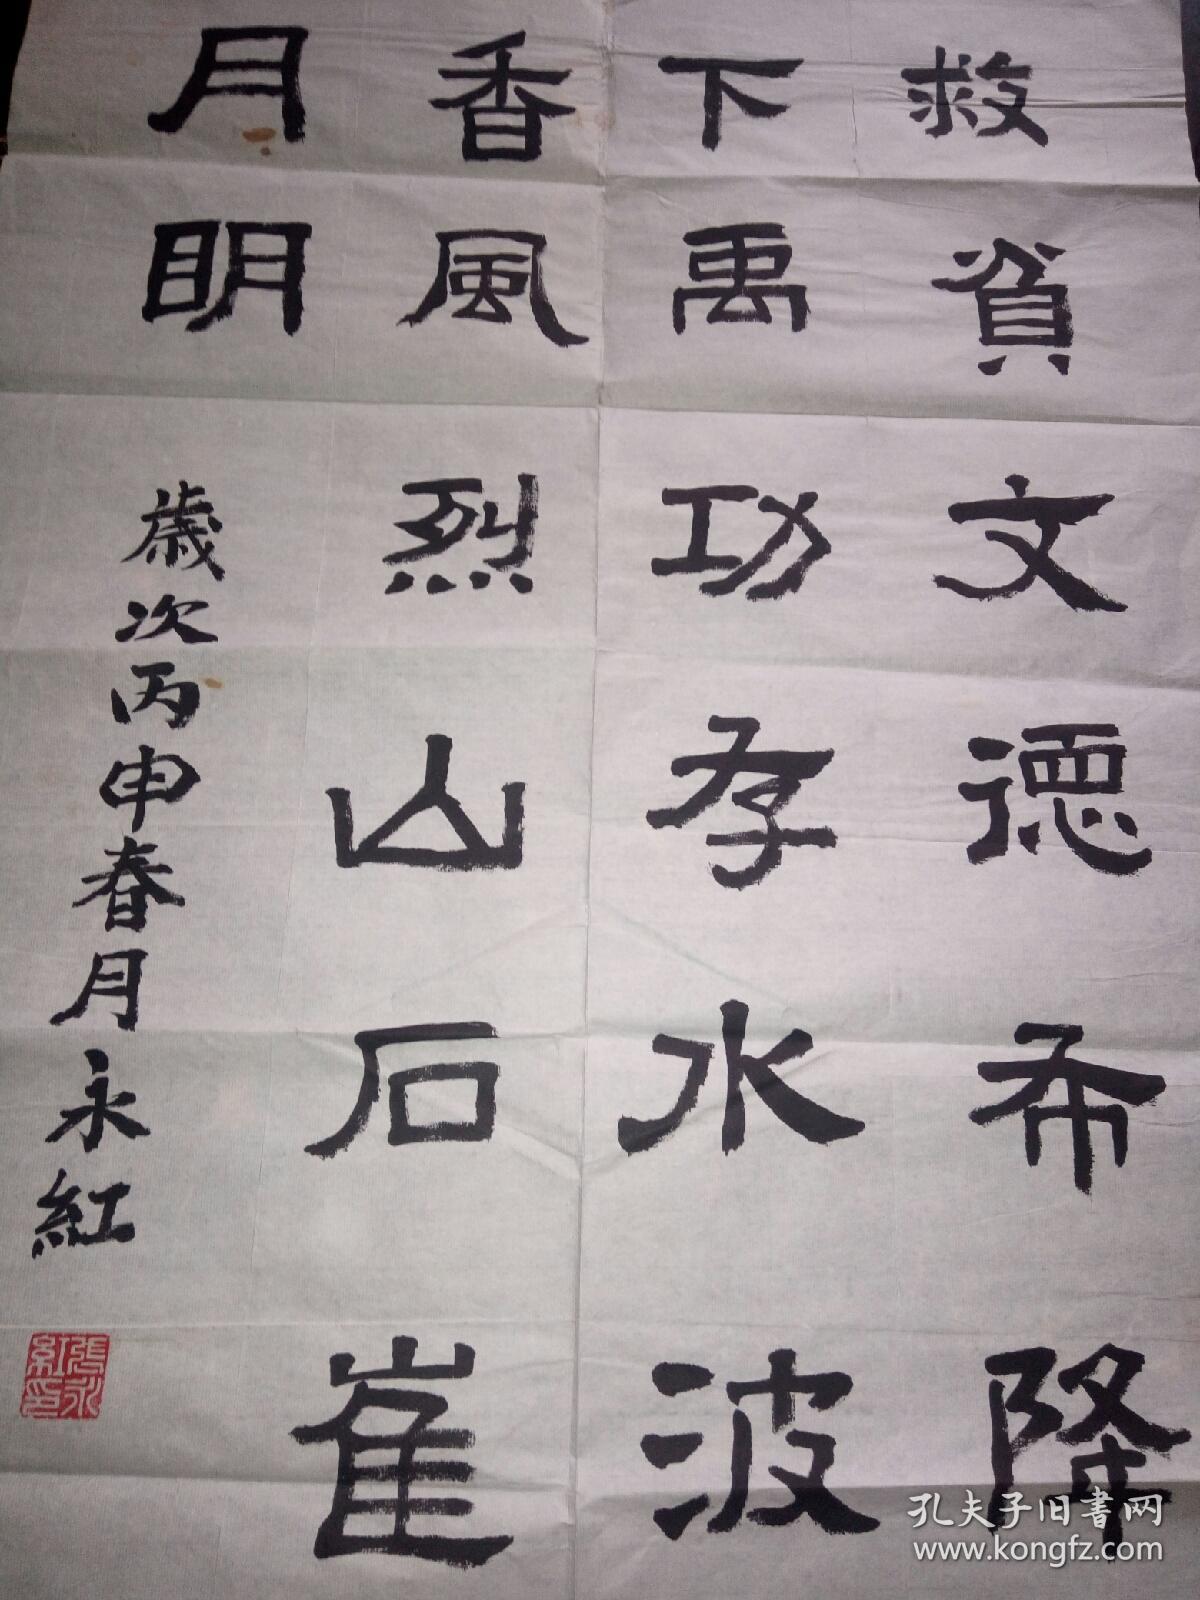 救貧文德希降
下禹功存水波
香風烈山石崔
月明
歲次丙申春月永紅
張永紅印
孔夫子旧書网
www.kongfz.com